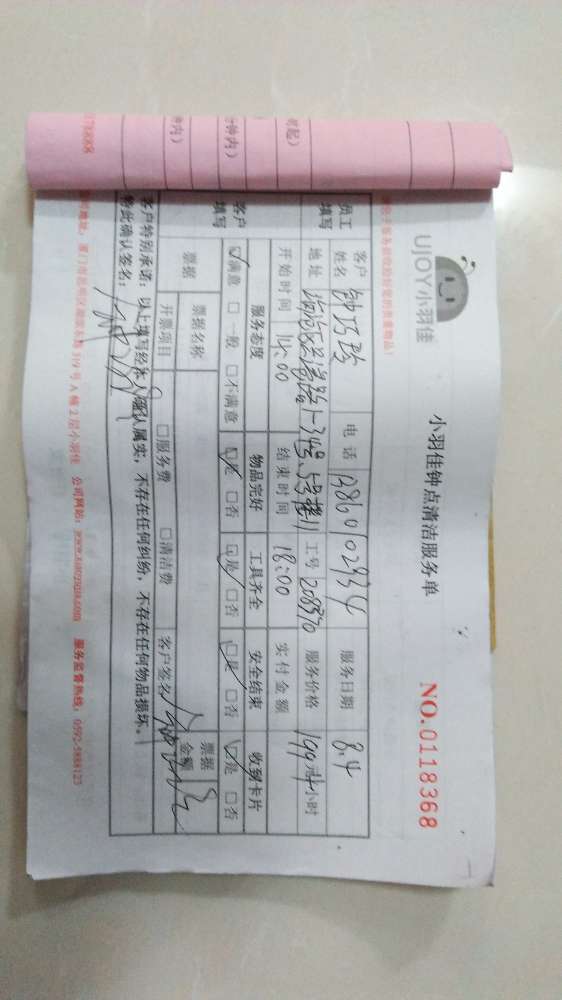 UJOY小羽佳
小羽佳钟点清洁服务单
NO.0118368
员工填写
客户姓名 钟巧玲 电话 服务日期 8.4
地址 工号 208370 服务价格 199 小时
开始时间 14:00 结束时间 18:00 实付金额
客户填写
服务态度 物品完好 工具齐全 安全结束 收到卡片
☑满意 □一般 □不满意 ☑是 □否 ☑是 □否 ☑是 □否 ☑是 □否
票据 票据名称 票据金额
开票项目 □服务费 □清洁费 客户签名
客户特别承诺：以上填写经本人确认属实，不存在任何纠纷，不存在任何物品损坏。
特此确认签名：
319号A幢2层小羽佳 公司网站： 服务监督热线：0592-5888123
时起）
分钟内）
钟内）